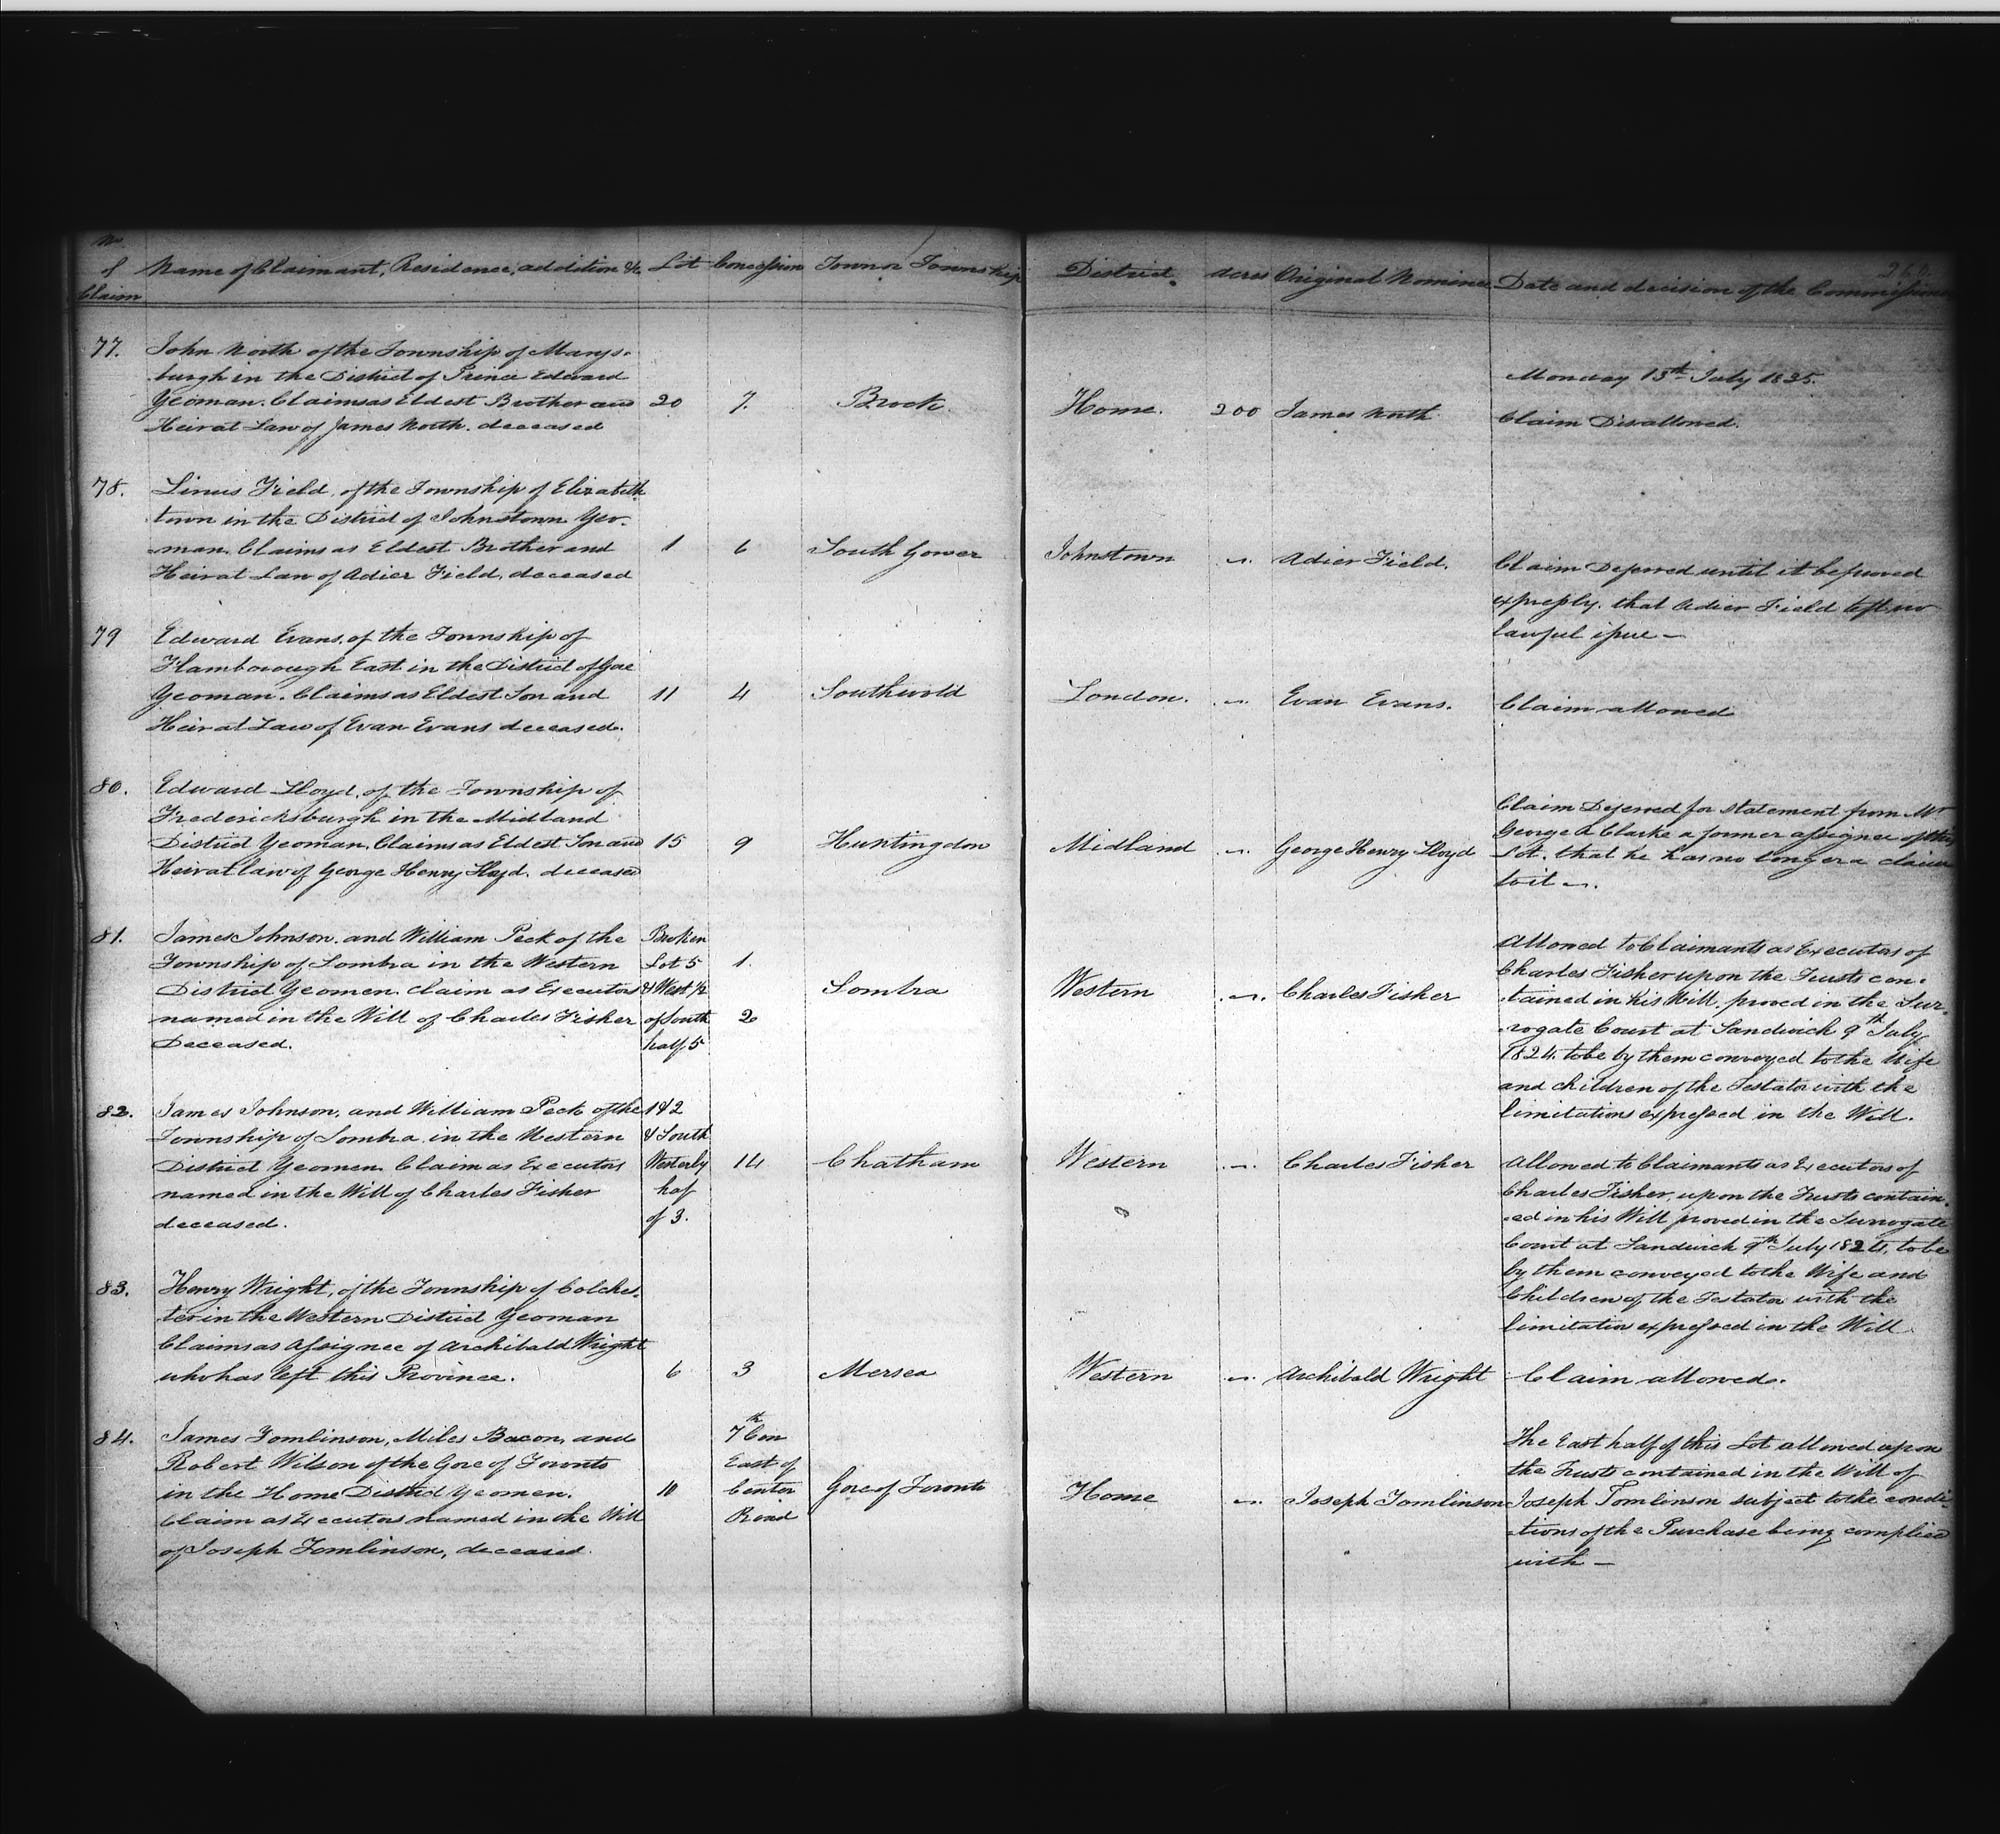 No. of Claim | Name of Claimant, Residence, addition &c. | Lot | Concession | Town or Township | District. | Acres | Original Nominee | Date and decision of the Commissioners
77. John North of the Township of Marys-
burgh in the District of Prince Edward
Yeoman. Claims as Eldest Brother and | 20 | 7. | Brock | Home. | 200 | James North
Heir at Law of James North. deceased
Monday 13th July 1835.
Claim Disallowed.
78. Linus Field, of the Township of Elizabeth
town in the District of Johnstown Yeo-
-man. Claims as Eldest Brother and | 1 | 6 | South Gower | Johnstown | " | Adier Field.
Heir at Law of Adier Field, deceased
Claim Deferred until it be proved
expressly. that Adier Field left no
lawful issue —
79 Edward Evans, of the Township of
Flamborough East in the District of Gore
Yeoman. Claims as Eldest Son and | 11 | 4 | Southwold | London. | " | Evan Evans. | Claim allowed
Heir at Law of Evan Evans deceased.
80. Edward Lloyd, of the Township of
Fredericksburgh in the Midland
District Yeoman. Claims as Eldest Son and | 15 | 9 | Huntingdon | Midland | " | George Henry Lloyd
Heir at law of George Henry Lloyd. deceased
Claim Deferred for statement from Mr
George A Clarke a former assignee of this
Lot. that he has no longer a claim
to it —.
81. James Johnson. and William Peck of the | Broken
Township of Sombra in the Western | Lot 5 | 1.
District Yeomen. claim as Executors | & West 1/2 | Sombra | Western | " | Charles Fisher
named in the Will of Charles Fisher | of South | 2
Deceased. | half 5
Allowed to Claimants as Executors of
Charles Fisher upon the Trusts con-
-tained in his Will, proved in the Sur-
-rogate Court at Sandwich 9th July
1824. to be by them conveyed to the Wife
and children of the Testator with the
limitations expressed in the Will.
82. James Johnson, and William Peck of the | 1 & 2
Township of Sombra in the Western | & South
District Yeomen. Claim as Executors | Westerly | 14 | Chatham | Western | " | Charles Fisher
named in the Will of Charles Fisher | haf
deceased. | of 3.
Allowed to Claimants as Executors of
Charles Fisher, upon the Trusts contain-
-ed in his Will proved in the Surrogate
Court at Sandwich 9th July 1824. to be
by them conveyed to the Wife and
Children of the Testator with the
limitation expressed in the Will.
83. Henry Wright, of the Township of Colches-
ter in the Western District Yeoman
Claims as Assignee of Archibald Wright
who has left this Province. | 6 | 3 | Mersea | Western | " | Archibald Wright | Claim allowed.
84. James Tomlinson, Miles Bacon, and | 7th Con
Robert Wilson of the Gore of Toronto | East of
in the Home District Yeomen. | 10 | Center | Gore of Toronto | Home | " | Joseph Tomlinson
Claim as Executors named in the Will | Road
of Joseph Tomlinson, deceased.
The East half of this Lot allowed upon
the Trusts contained in the Will of
Joseph Tomlinson subject to the condi-
-tions of the Purchase being complied
with —